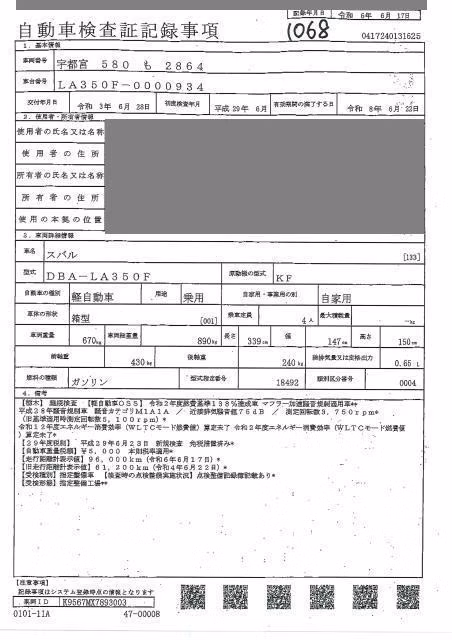 記録年月日 令和 6年 6月 17日
自動車検査証記録事項
1068
0417240131625
1. 基本情報
車両番号 宇都宮 580 も 2864
車台番号 LA350F-0000934
交付年月日 令和 3年 6月 28日 初度検査年月 平成 29年 6月 有効期間の満了する日 令和 8年 6月 22日
2. 使用者・所有者情報
使用者の氏名又は名称
使用者の住所
所有者の氏名又は名称
所有者の住所
使用の本拠の位置
3. 車両詳細情報
車名 スバル [133]
型式 DBA-LA350F 原動機の型式 KF
自動車の種別 軽自動車 用途 乗用 自家用・事業用の別 自家用
車体の形状 箱型 [001] 乗車定員 4人 最大積載量 -kg
車両重量 670kg 車両総重量 890kg 長さ 339cm 幅 147cm 高さ 150cm
前軸重 430kg 後軸重 240kg 総排気量又は定格出力 0.65 L
燃料の種類 ガソリン 型式指定番号 18492 類別区分番号 0004
4. 備考
【栃木】 継続検査 【軽自動車OSS】 令和2年度燃費基準133%達成車 マフラー加速騒音規制適用車**
平成28年騒音規制車 騒音カテゴリM1A1A / 近接排気騒音値75dB / 測定回転数3,750rpm*
(旧基準適用時測定回転数5,100rpm)*
令和12年度エネルギー消費効率(WLTCモード燃費値)算定未了 令和2年度エネルギー消費効率(WLTCモード燃費値
)算定未了*
【29年度税制】 平成29年6月23日 新規検査 免税措置済み*
【自動車重量税額】 ¥5,000 本則税率適用*
【走行距離計表示値】 96,000km(令和6年6月17日)*
【旧走行距離計表示値】 61,200km(令和4年6月22日)*
【受検種別】指定整備車 【検査時の点検整備実施状況】点検整備記録簿記載あり*
【受検形態】指定整備工場**
【注意事項】
記録事項はシステム登録時点の情報となります
車両ID K9567MX7893003
0101-11A 47-00008